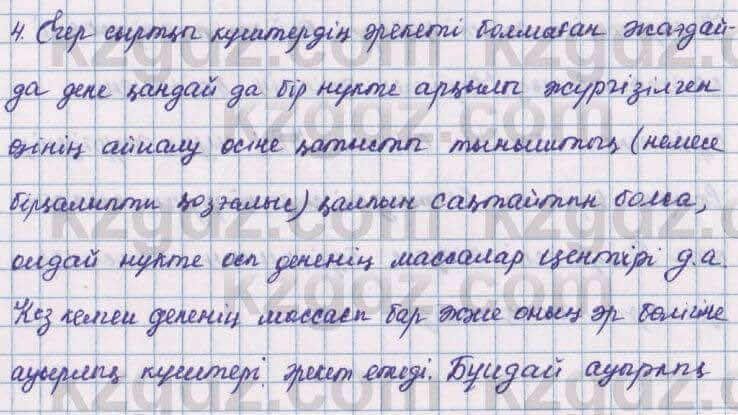 4. Егер сыртқы күштердің әрекеті болмаған жағдай-
да дене қандай да бір нүкте арқылы жүргізілген
өзінің айналу осіне қатысты тыныштық (немесе
бірқалыпты қозғалыс) қалпын сақтайтын болса,
ондай нүкте осы дененің массалар центірі д.а.
Кез келген дененің массасы бар және оның әр бөлігіне
ауырлық күштері әрекет етеді. Бұндай ауырлық
kzgdz.com